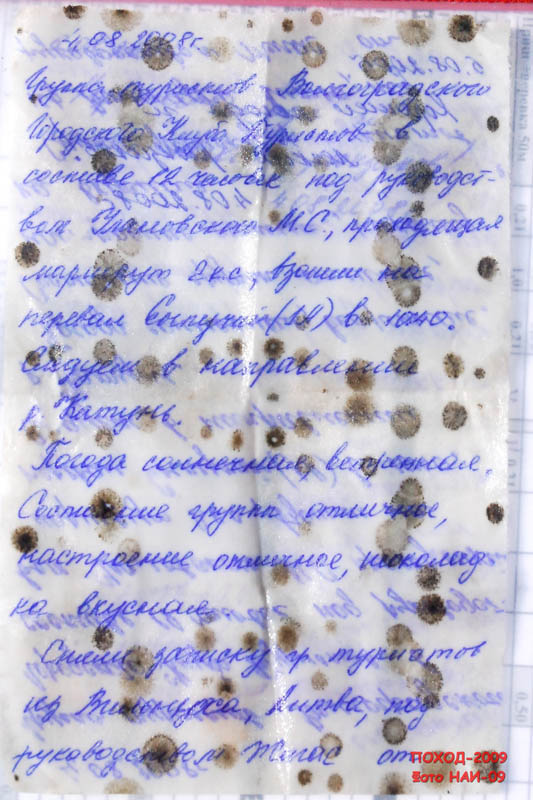 4.08.2008г.
Группа туристов Волгоградского
Городского Клуба Туристов в
составе 12 человек под руководст-
вом М.С., проходящая
маршрут 2 к.с., взошли на
перевал Сыпучий (1А) в 10:40.
Следуем в направлении
р. Катунь.
Погода солнечная, ветренная.
Состояние группы отличное,
настроение отличное, шоколад-
ка вкусная.
Сняли записку гр. туристов
из Вильнюса, Литва, под
руководством от
ПОХОД-2009
Фото НАИ-09